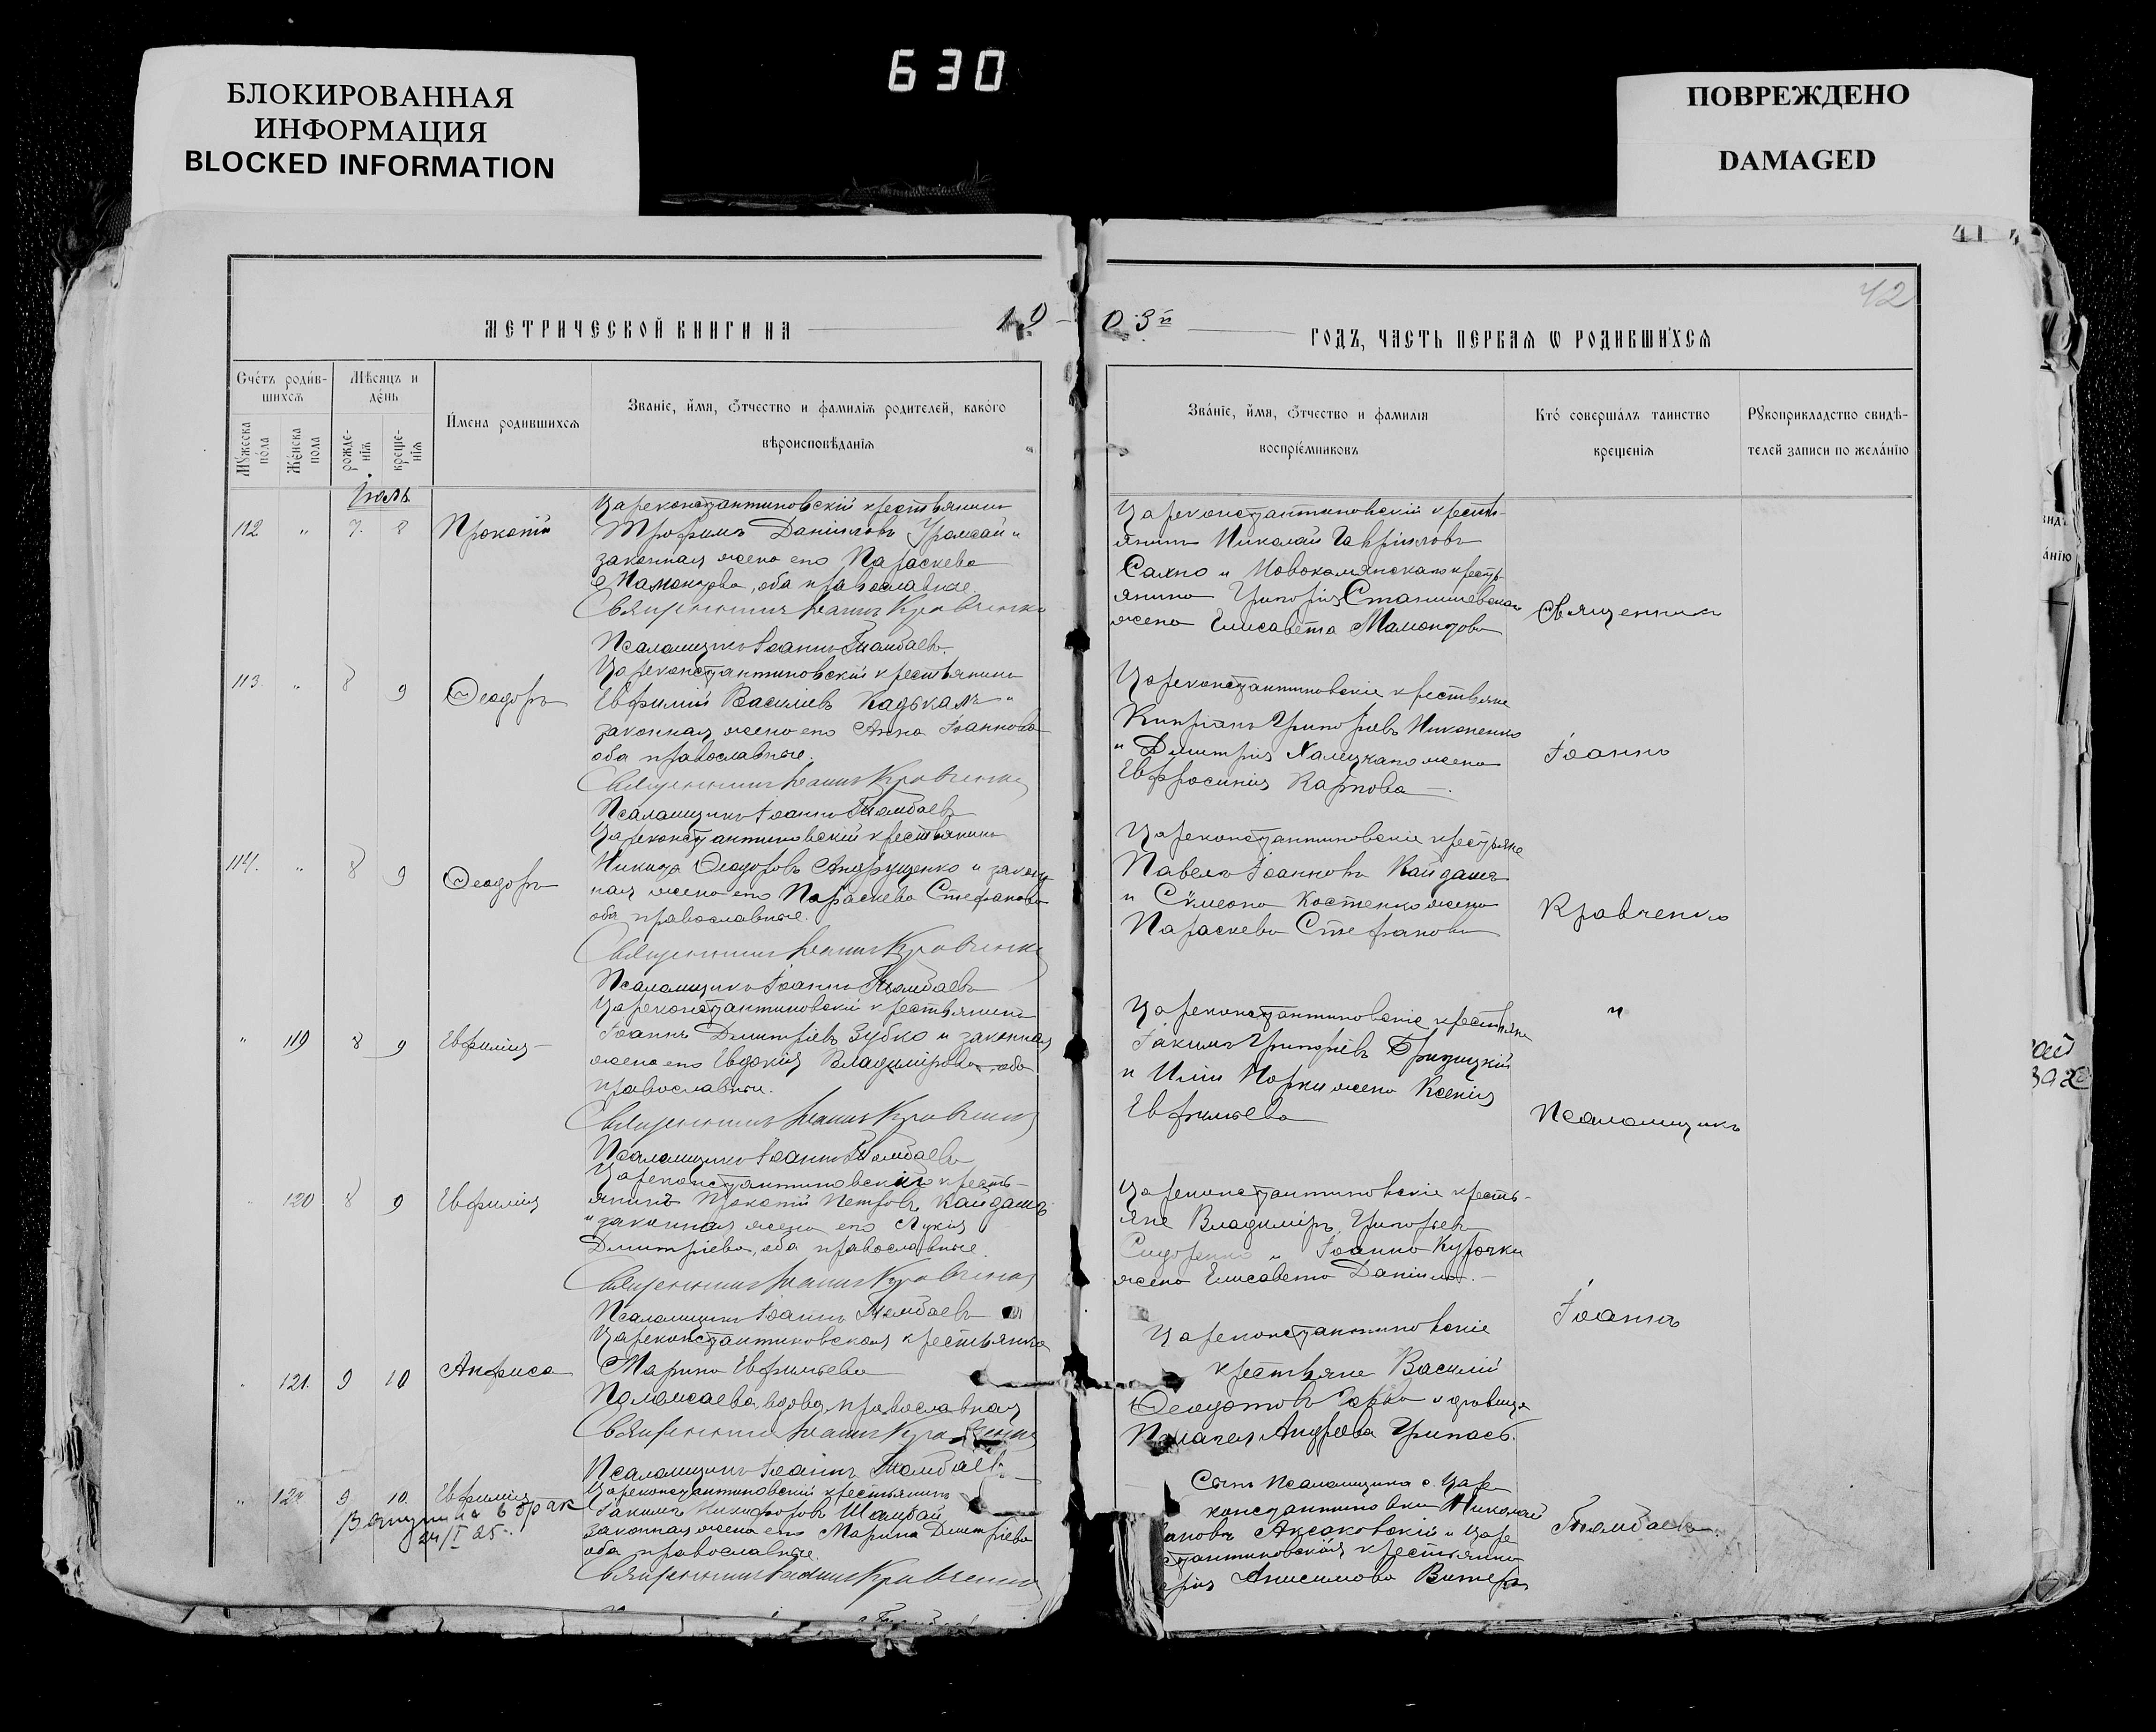 630
БЛОКИРОВАННАЯ
ИНФОРМАЦИЯ
BLOCKED INFORMATION
ПОВРЕЖДЕНО
DAMAGED
41
42
МЕТРИЧЕСКОЙ КНИГИ НА 19
03й ГОДЪ, ЧАСТЬ ПЕРВАЯ Ѡ РОДИВШИХСЯ
Счéтъ роди́в-
шихсѧ
Мѣ́сяцъ и
дéнь
Мꙋжеска
пóла
Жéнска
пола
рожде-
нїѧ
креще-
нїѧ
И́мена родившихсѧ
Званїе, и́мя, ѻ́тчество и фамилїѧ родителей, какóго
вѣроисповѣ́данїѧ
Звáнїе, и́мя, ѻ́тчество и фамилїя
воспрїéмниковъ
Ктó совершáлъ таинство
крещенїѧ
Рꙋкоприкладство свидѣ-
телей записи по желáнїю
Іюль
112 " 7. 8 Прокопій
Цареконстантиновскій крестьянинъ
Трофимъ Даніиловъ и
законная жена его Параскева
Мамонтова, оба православные.
Священникъ Іоаннъ Кравченко
Псаломщикъ Іоаннъ
Цареконстантиновскій кресть-
янинъ Николай Гавріиловъ
Сахно и Новокаменскаго кресть-
янина Григорія
жена Елисавета Мамонтова
Священникъ
113. " 8 9 Ѳеодоръ
Цареконстантиновскій крестьянинъ
Евфимій Васильевъ и
законная жена его Анна Іоаннова
оба православные.
Священникъ Іоаннъ Кравченко
Псаломщикъ Іоаннъ
Цареконстантиновскіе крестьяне
Кипріанъ Григорьевъ
и Димитрія жена
Евфросинія Карпова
Іоаннъ
114. " 8 9 Ѳеодоръ
Цареконстантиновскій крестьянинъ
Никита Ѳеодоровъ Андрущенко и закон-
ная жена его Параскева Стефанова
оба православные.
Священникъ Іоаннъ Кравченко
Псаломщикъ Іоаннъ
Цареконстантиновскіе крестьяне
Павелъ Іоанновъ Кайдашъ
и Сѵмеона Костенко жена
Параскева Стефанова
Кравченко
" 119 8 9 Евфимія
Цареконстантиновскій крестьянинъ
Іоаннъ Димитріевъ Зубко и законная
жена его Евдокія Владимірова, оба
православные.
Священникъ Іоаннъ Кравченко
Псаломщикъ Іоаннъ
Цареконстантиновскіе крестьяне
Іакимъ Григорьевъ
и Иліи жена Ксенія
Евфимьева
и
Псаломщикъ
120 8 9 Евфимія
Цареконстантиновскій кресть-
янинъ Прокопій Петровъ Кайдашъ
и законная жена его Лукія
Димитріева, оба православные.
Священникъ Іоаннъ Кравченко
Псаломщикъ Іоаннъ
Цареконстантиновскіе кресть-
яне Владиміръ Григорьевъ
Сидоренко и Іоанна Курочки
жена Елисавета Даніилова.
Іоаннъ
121. 9 10 Анфиса
Цареконстантиновская крестьянка
Марина Евфимьева
вдова, православная
Священникъ Іоаннъ Кравченко
Псаломщикъ Іоаннъ
Цареконстантиновскіе
крестьяне Василій
и девица
Андреева
" 122 9 10. Евфимія
Вступила в брак
24/I 25.
Цареконстантиновскій крестьянинъ
Іакимъ Никифоровъ
законная жена его Марина Димитріева
оба православные.
Священникъ Іоаннъ Кравченко
Сынъ псаломщика с. Царе-
константиновки Николай
Аксаковскій и Царе-
стантиновская крестьянка
Анисимова